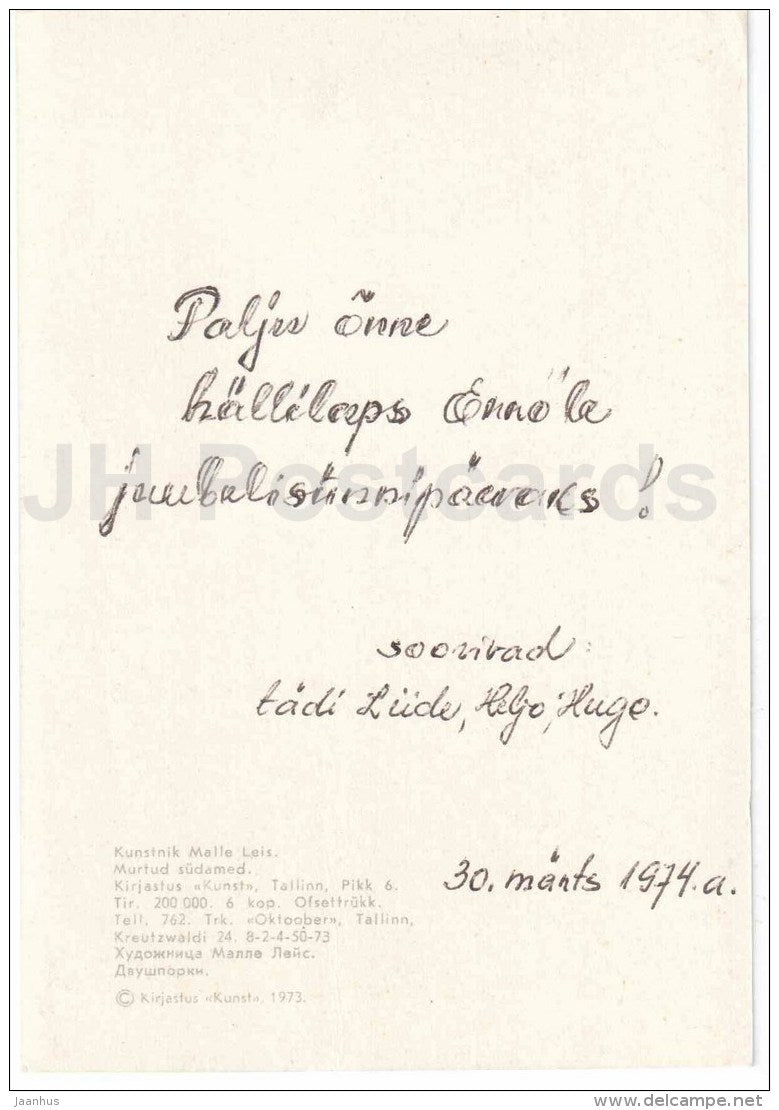 Palju õnne
hällilaps Enno'le
juubelisünnipäevaks!
soovivad:
tädi Liide, Heljo, Hugo.
30. märts 1974.a.
Kunstnik Malle Leis.
Murtud südamed.
Kirjastus «Kunst», Tallinn, Pikk 6.
Tir. 200 000. 6 kop. Ofsettrükk.
Tell. 762. Trk. «Oktoober», Tallinn,
Kreutzwaldi 24. 8-2-4-50-73
Художница Малле Лейс.
Двушпорки.
© Kirjastus «Kunst», 1973.
JH Postcards
Jaanhus
www.delcampe.net